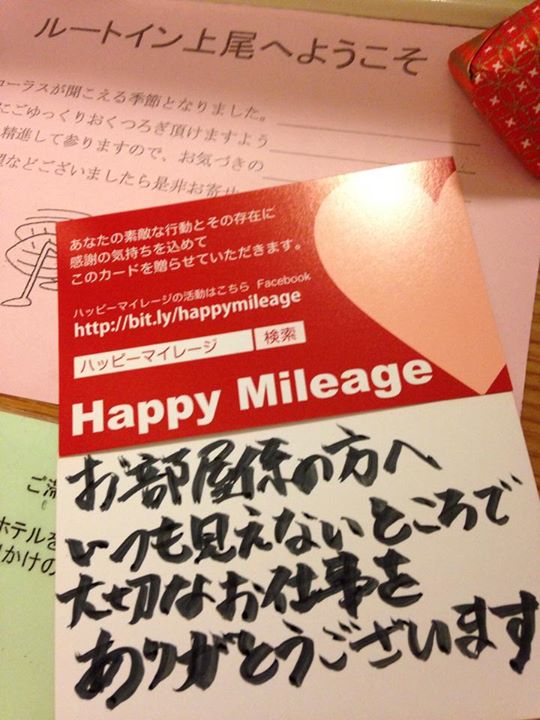 ルートイン上尾へようこそ
ーラスが聞こえる季節となりました。
にごゆっくりおくつろぎ頂けますよう
精進して参りますので、お気づきの
などございましたら是非お寄せ
あなたの素敵な行動とその存在に
感謝の気持ちを込めて
このカードを贈らせていただきます。
ハッピーマイレージの活動はこちら Facebook
http://bit.ly/happymileage
ハッピーマイレージ 検索
Happy Mileage
お部屋係の方へ
いつも見えないところで
大切なお仕事を
ありがとうございます
ご滞
ホテルを
かけの